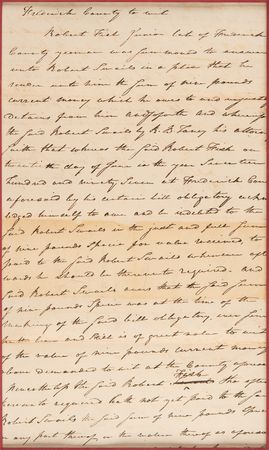 Frederick County to wit
Robert Fish Junior late of Frederick
County yeoman was summoned to answer
unto Robert Swails in a plea that he
render unto him the sum of nine pounds
current money which he owes to and unjustly
detains from him and soforth and whereupon
the said Robert Swails by R. B. Taney his attorney
saith that whereas the said Robert Fish on
the day of June in the year Seventeen
hundred and ninety Seven at Frederick County
aforesaid by his certain bill obligatory acknow
ledged himself to owe and be indebted to the
said Robert Swails in the just and full sum
of nine pounds Specie for value received, to
paid to the said Robert Swails whenever after
wards he should be thereunto required. and
said Robert Swails avers that the said sum
of nine pounds Specie was at the time of the
making of the said bill obligatory, ever since
hath been and still is of great value to wit
of the value of nine pounds current money
above demanded to wit at the County aforesaid
Nevertheless the said Robert Fish tho often
hereto required hath not yet paid to the said
Robert Swails the said sum of nine pounds Specie
or any part thereof, or the value thereof as aforesaid